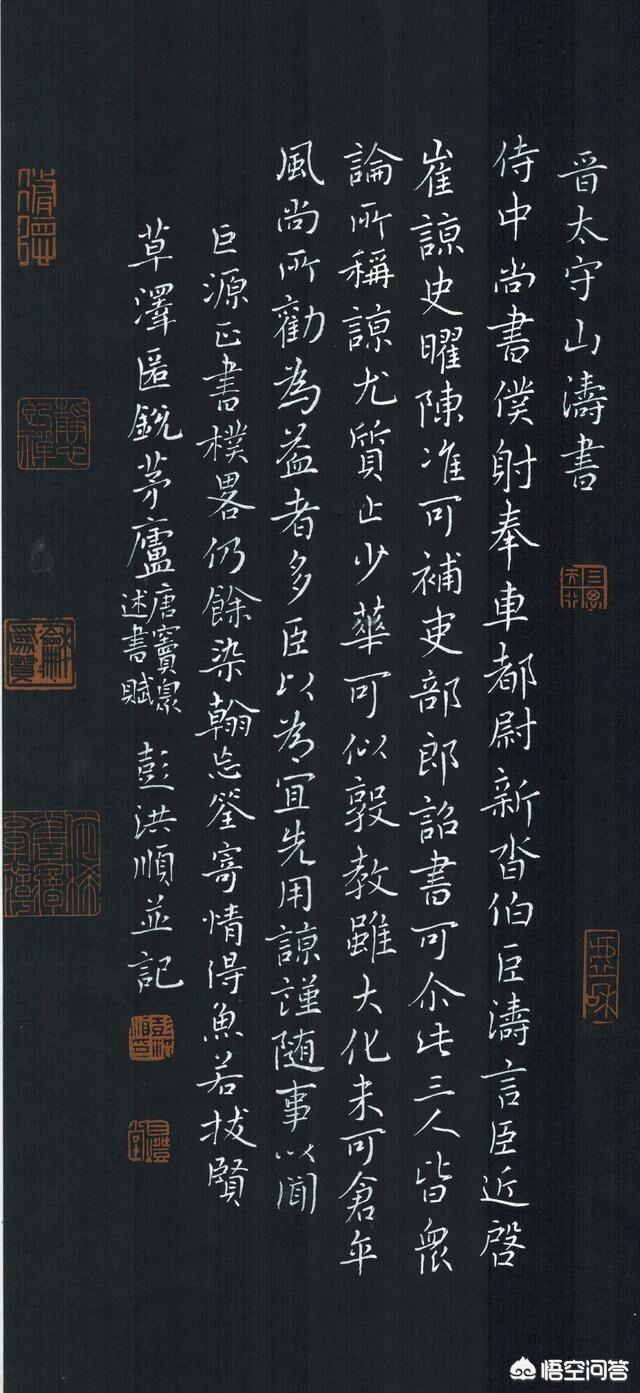 晋太守山濤書
侍中尚書僕射奉車都尉新沓伯臣濤言臣近啓
崔諒史曜陳准可補吏部郎詔書可尒此三人皆衆
論所稱諒尤質止少華可以敦教雖大化未可倉卒
風尚所勸為益者多臣以為宜先用諒謹随事以聞
巨源正書樸畧仍餘染翰忘筌寄情得魚若拔賢
草澤匿銳茅廬
唐竇臮
述書賦
彭洪順並記
悟空问答